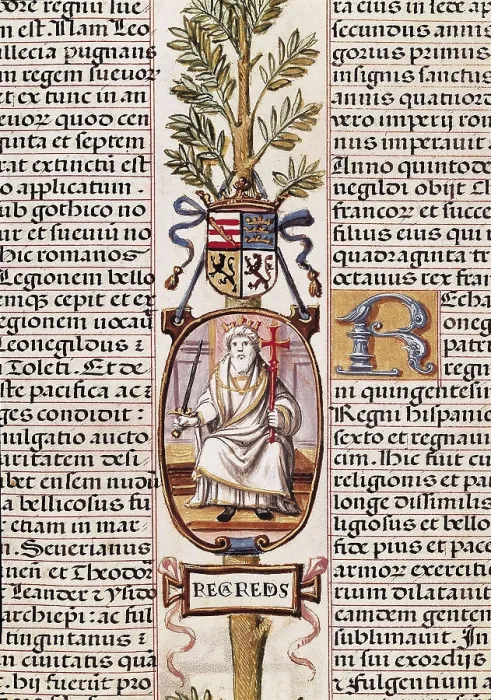 dore regni sue
m est. Nam Leo
allecia pugnans
m regem sueuor
et ex tunc in an
euor quod cen
ginta et septem
rat extinctū est
o applicatum.
ub gothico no
ur et sueuiū no
hic romanos
Legionem bello
emqȝ cepit et ex
egionem uocau
Leonegildus ⁊
Toleti. Et de
ste pacifica ac ⁊
ges condidit :
mulgatio aucto
uritatem desi
abet ensem nudū
a bellicosus fu
r etiam in mar
n. Seuerianus
inen et Theodor
t Leander ⁊ ysido
archiepi: ac ful
tingintanus ⁊
n ciuitatis quā
. hij fuerūt pro
RECAREDVS
ra eius in sede ap
secundus annis
gorius primus
insignis sanctus
annis quatuord
vero imperij rom
nus imperauit.
Anno quinto de
negildi obijt Ch
francor et succe
filius eius qui r
quadraginta tr
octauus rex fran
R Echa
oneg
patri
regn
ni quingentesi
Regni hispanie
sexto et regnaui
cim. Hic fuit cu
religionis et pa
longe dissimilis
ligiosus et bello
fide pius et pace
armor exercitio
rium dilatauit
eamdem gentem
sublimauit. In
m sui exordijs
⁊ fulgentium a